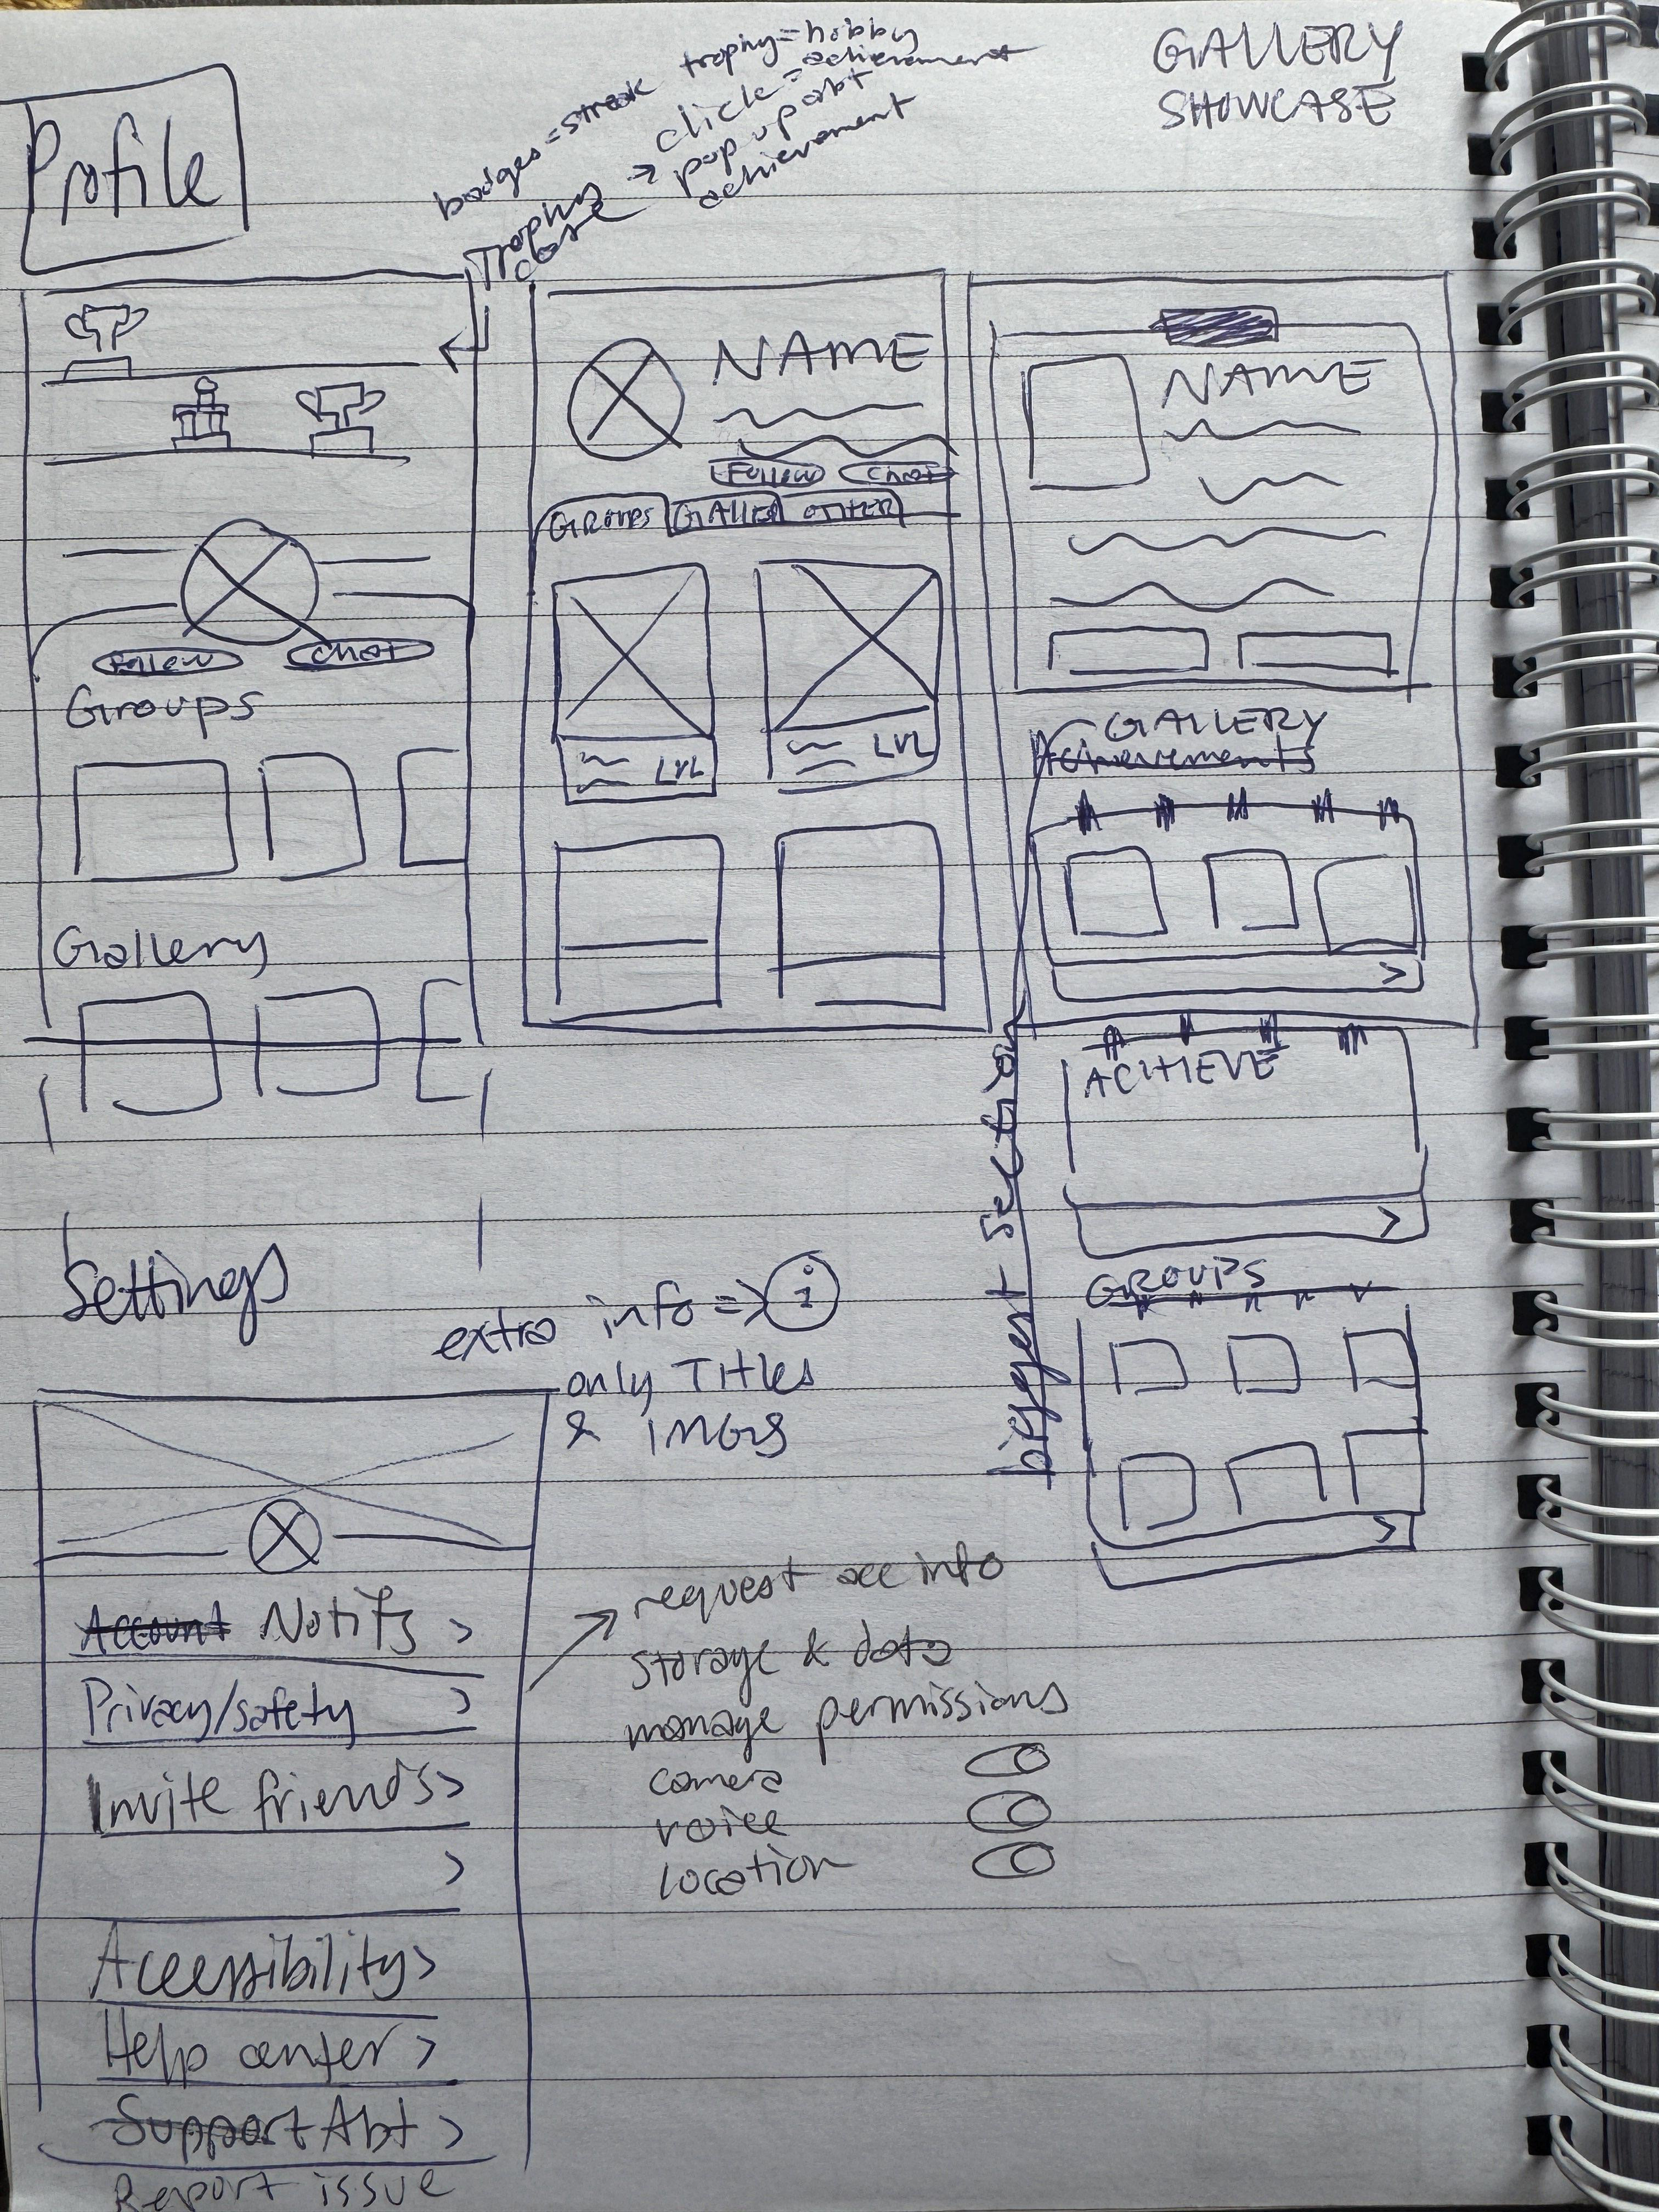 GALLERY
SHOWCASE
Profile
badges = streak trophy = hobby
achievement
Trophy
case
→ click =
pop up abt
achievement
Follow Chat
Groups
Gallery
NAME
Follow Chat
GROUPS GALLE OTHER
LVL LVL
NAME
GALLERY
Achievements
ACHIEVE
GROUPS
biggest section
Settings
extra info => i
only Titles
& IMGS
Account Notifs >
Privacy/safety >
Invite friends >
>
Accessibility >
Help center >
Support Abt >
Report issue
request acc info
storage & data
manage permissions
camera
voice
location